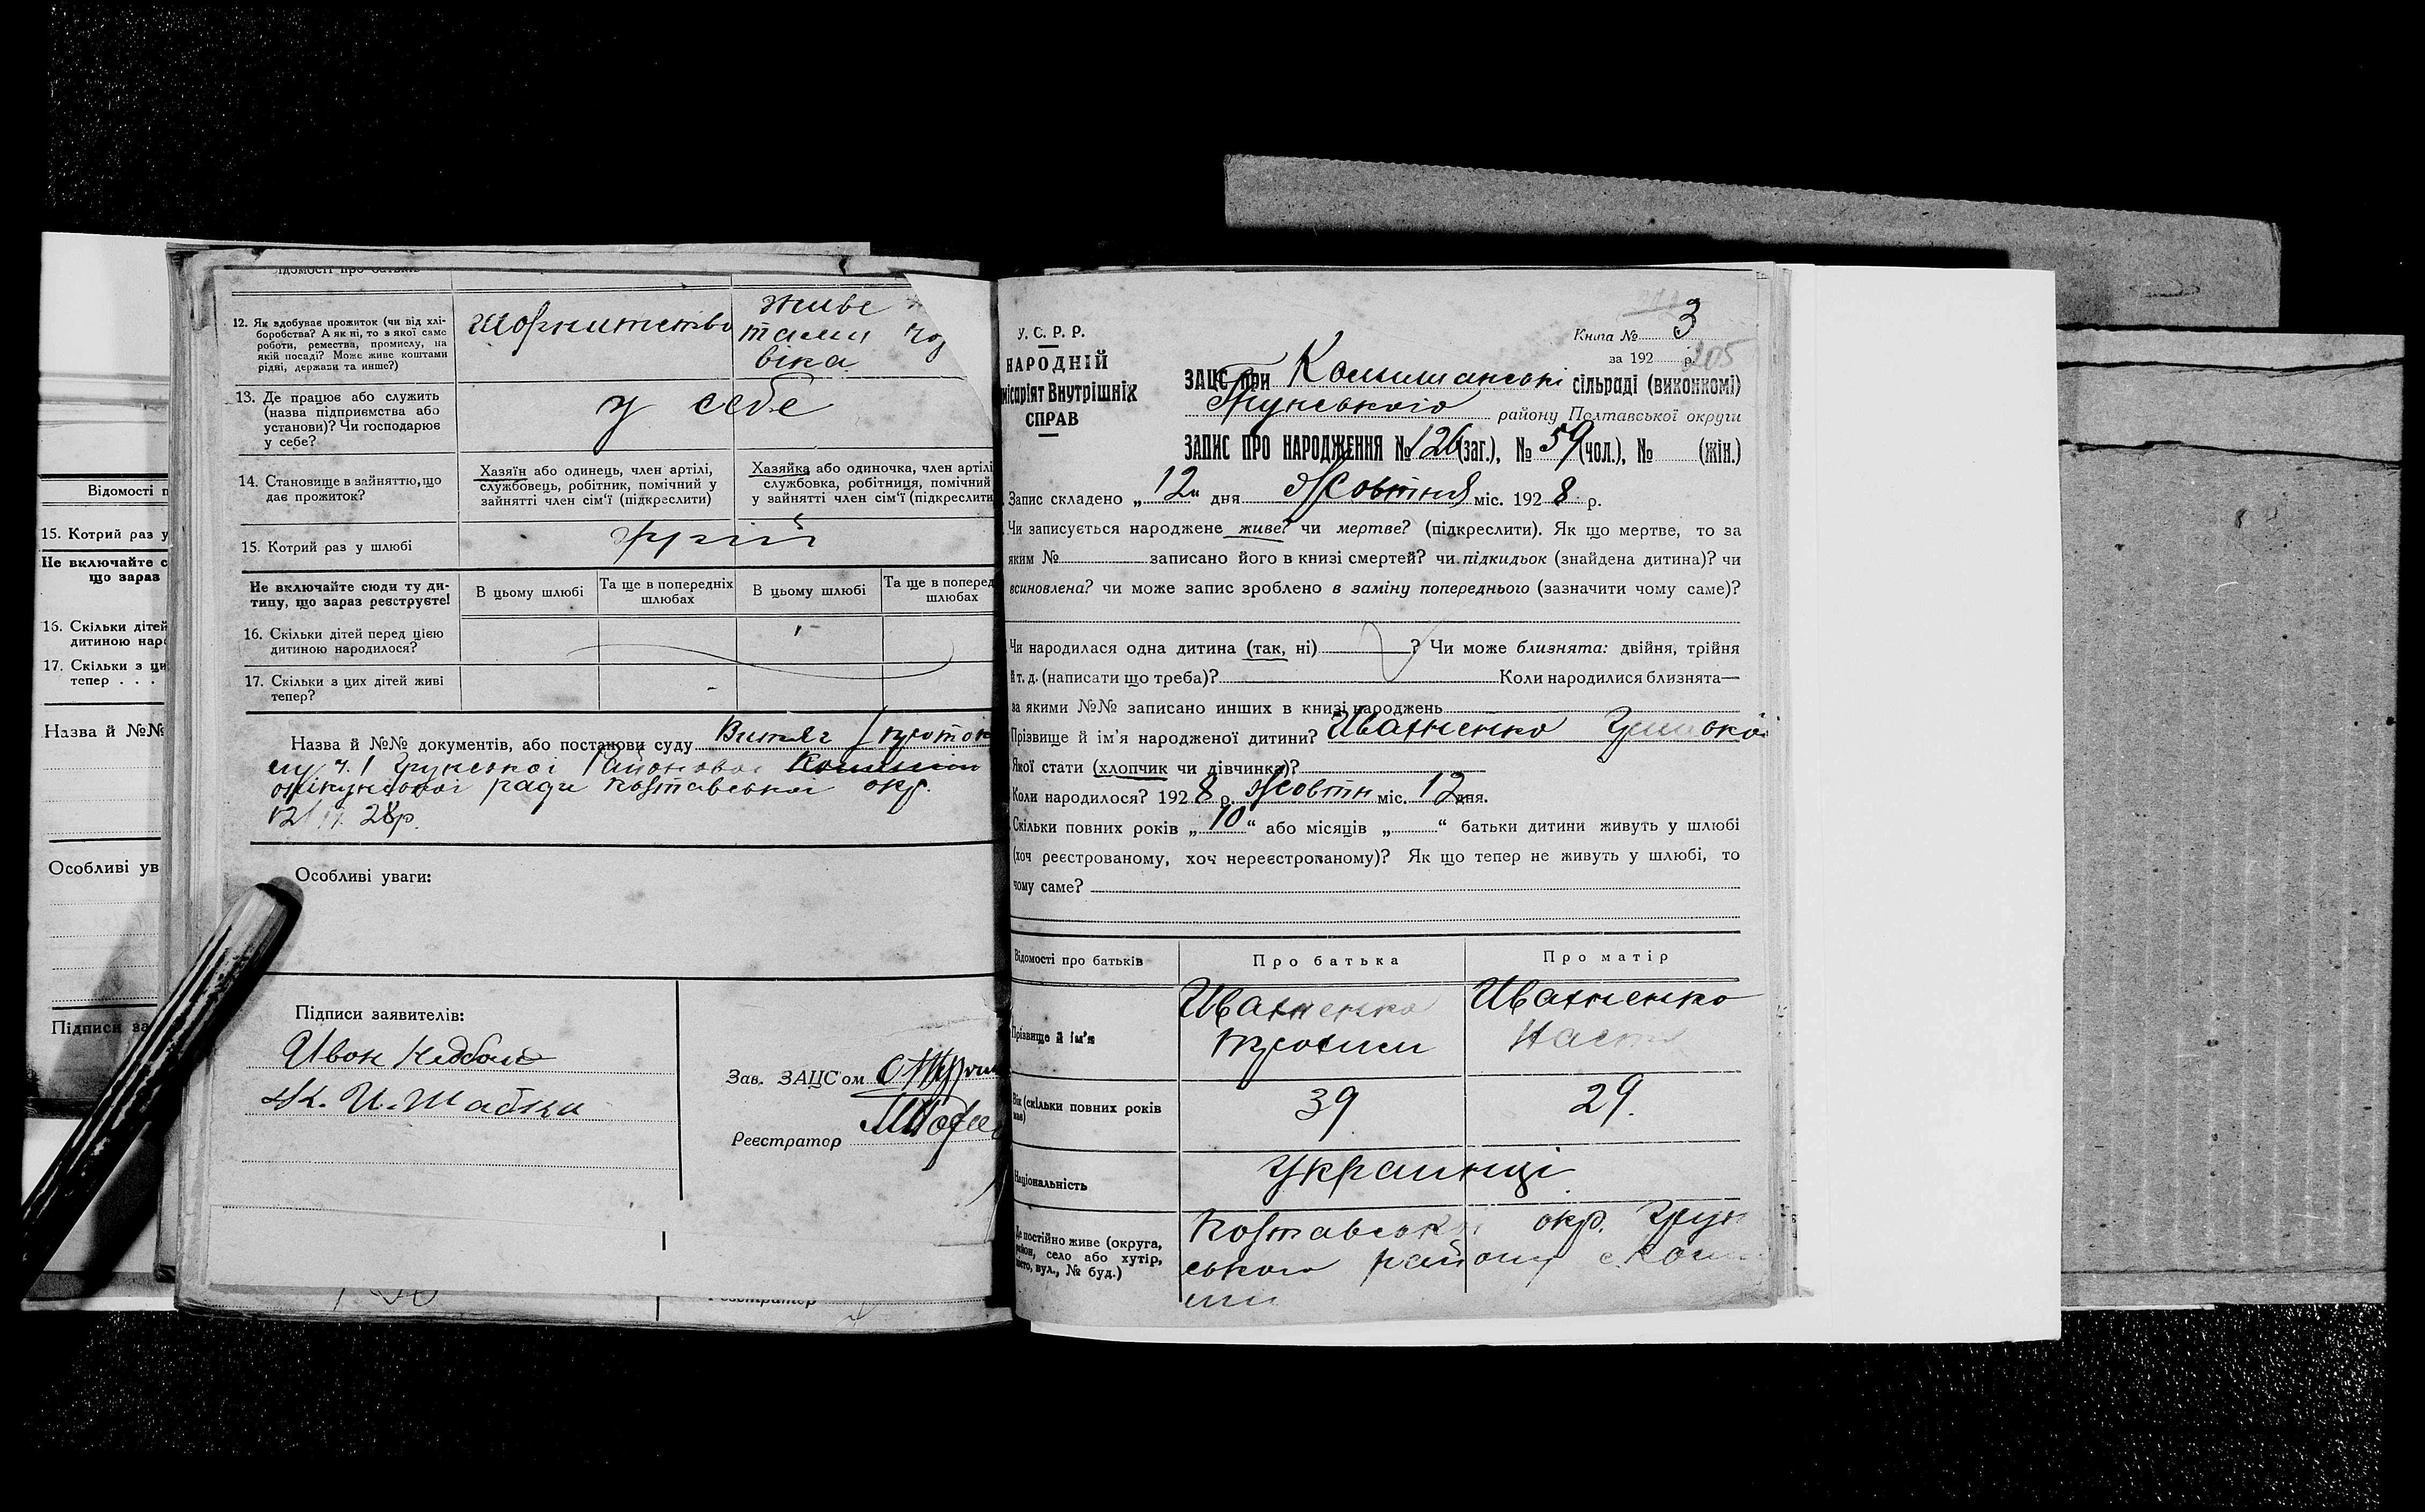 Відомості п
15. Котрий раз у
Не включайте с
що зараз
16. Скільки дітей
дитиною наро
17. Скільки з ци
тепер . . .
Назва й №№
Особливі ув
Підписи за
ідомості про батьків
12. Як здобуває прожиток (чи від хлі-
боробства? А як ні, то з якої саме
роботи, ремества, промислу, на
якій посаді? Може живе коштами
рідні, держави та инше?)
живе
тами
віка
13. Де працює або служить
(назва підприємства або
установи)? Чи господарює
у себе?
у себе
14. Становище в зайняттю, що
дає прожиток?
Хазяїн або одинець, член артілі,
службовець, робітник, помічний у
зайнятті член сім'ї (підкреслити)
Хазяйка або одиночка, член артілі
службовка, робітниця, помічний
у зайнятті член сім'ї (підкреслити
15. Котрий раз у шлюбі
Не включайте сюди ту ди-
тину, що зараз реєструєте!
В цьому шлюбі
Та ще в попередніх
шлюбах
В цьому шлюбі
Та ще в поперед
шлюбах
16. Скільки дітей перед цією
дитиною народилося?
17. Скільки з цих дітей живі
тепер?
Назва й №№ документів, або постанови суду Витяг з проток
ч. 1 Грунської Районової
ради Полтавської окр.
12/ 28р.
Особливі уваги:
Підписи заявителів:
Ивон
И. Шабка
Зав. ЗАЦС'ом
Реєстратор
Реєстратор
У. С. Р. Р.
НАРОДНІЙ
місаріят Внутрішніх
СПРАВ
Книга № 3
за 192 р. 205
ЗАЦС при Комишанські сільраді (виконкомі)
Грунського району Полтавської округи
ЗАПИС ПРО НАРОДЖЕННЯ № 126 (заг.), № 59 (чол.), № (жін.)
Запис складено „ 12 " дня Жовтня міс. 192 8 р.
Чи записується народжене живе? чи мертве? (підкреслити). Як що мертве, то за
яким № записано його в книзі смертей? чи підкидьок (знайдена дитина)? чи
всиновлена? чи може запис зроблено в заміну попереднього (зазначити чому саме)?
Чи народилася одна дитина (так, ні) ? Чи може близнята: двійня, трійня
й т. д. (написати що треба)? Коли народилися близнята—
за якими №№ записано инших в книзі народжень
Прізвище й ім'я народженої дитини? Ивахненко
Якої стати (хлопчик чи дівчинка)?
Коли народилося? 192 8 р. Жовтн міс. 12 дня.
Скільки повних років „ 10 " або місяців „ " батьки дитини живуть у шлюбі
(хоч реєстрованому, хоч нереєстрованому)? Як що тепер не живуть у шлюбі, то
чому саме?
Відомості про батьків
Про батька
Про матір
Прізвище й ім'я
Ивахненко
Ивахненко
Наст
Вік (скільки повних років
має)
39
29.
Національність
Украинці
Де постійно живе (округа,
район, село або хутір,
місто, вул., № буд.)
Полтавськ окр. Грун
ського району с. Ком